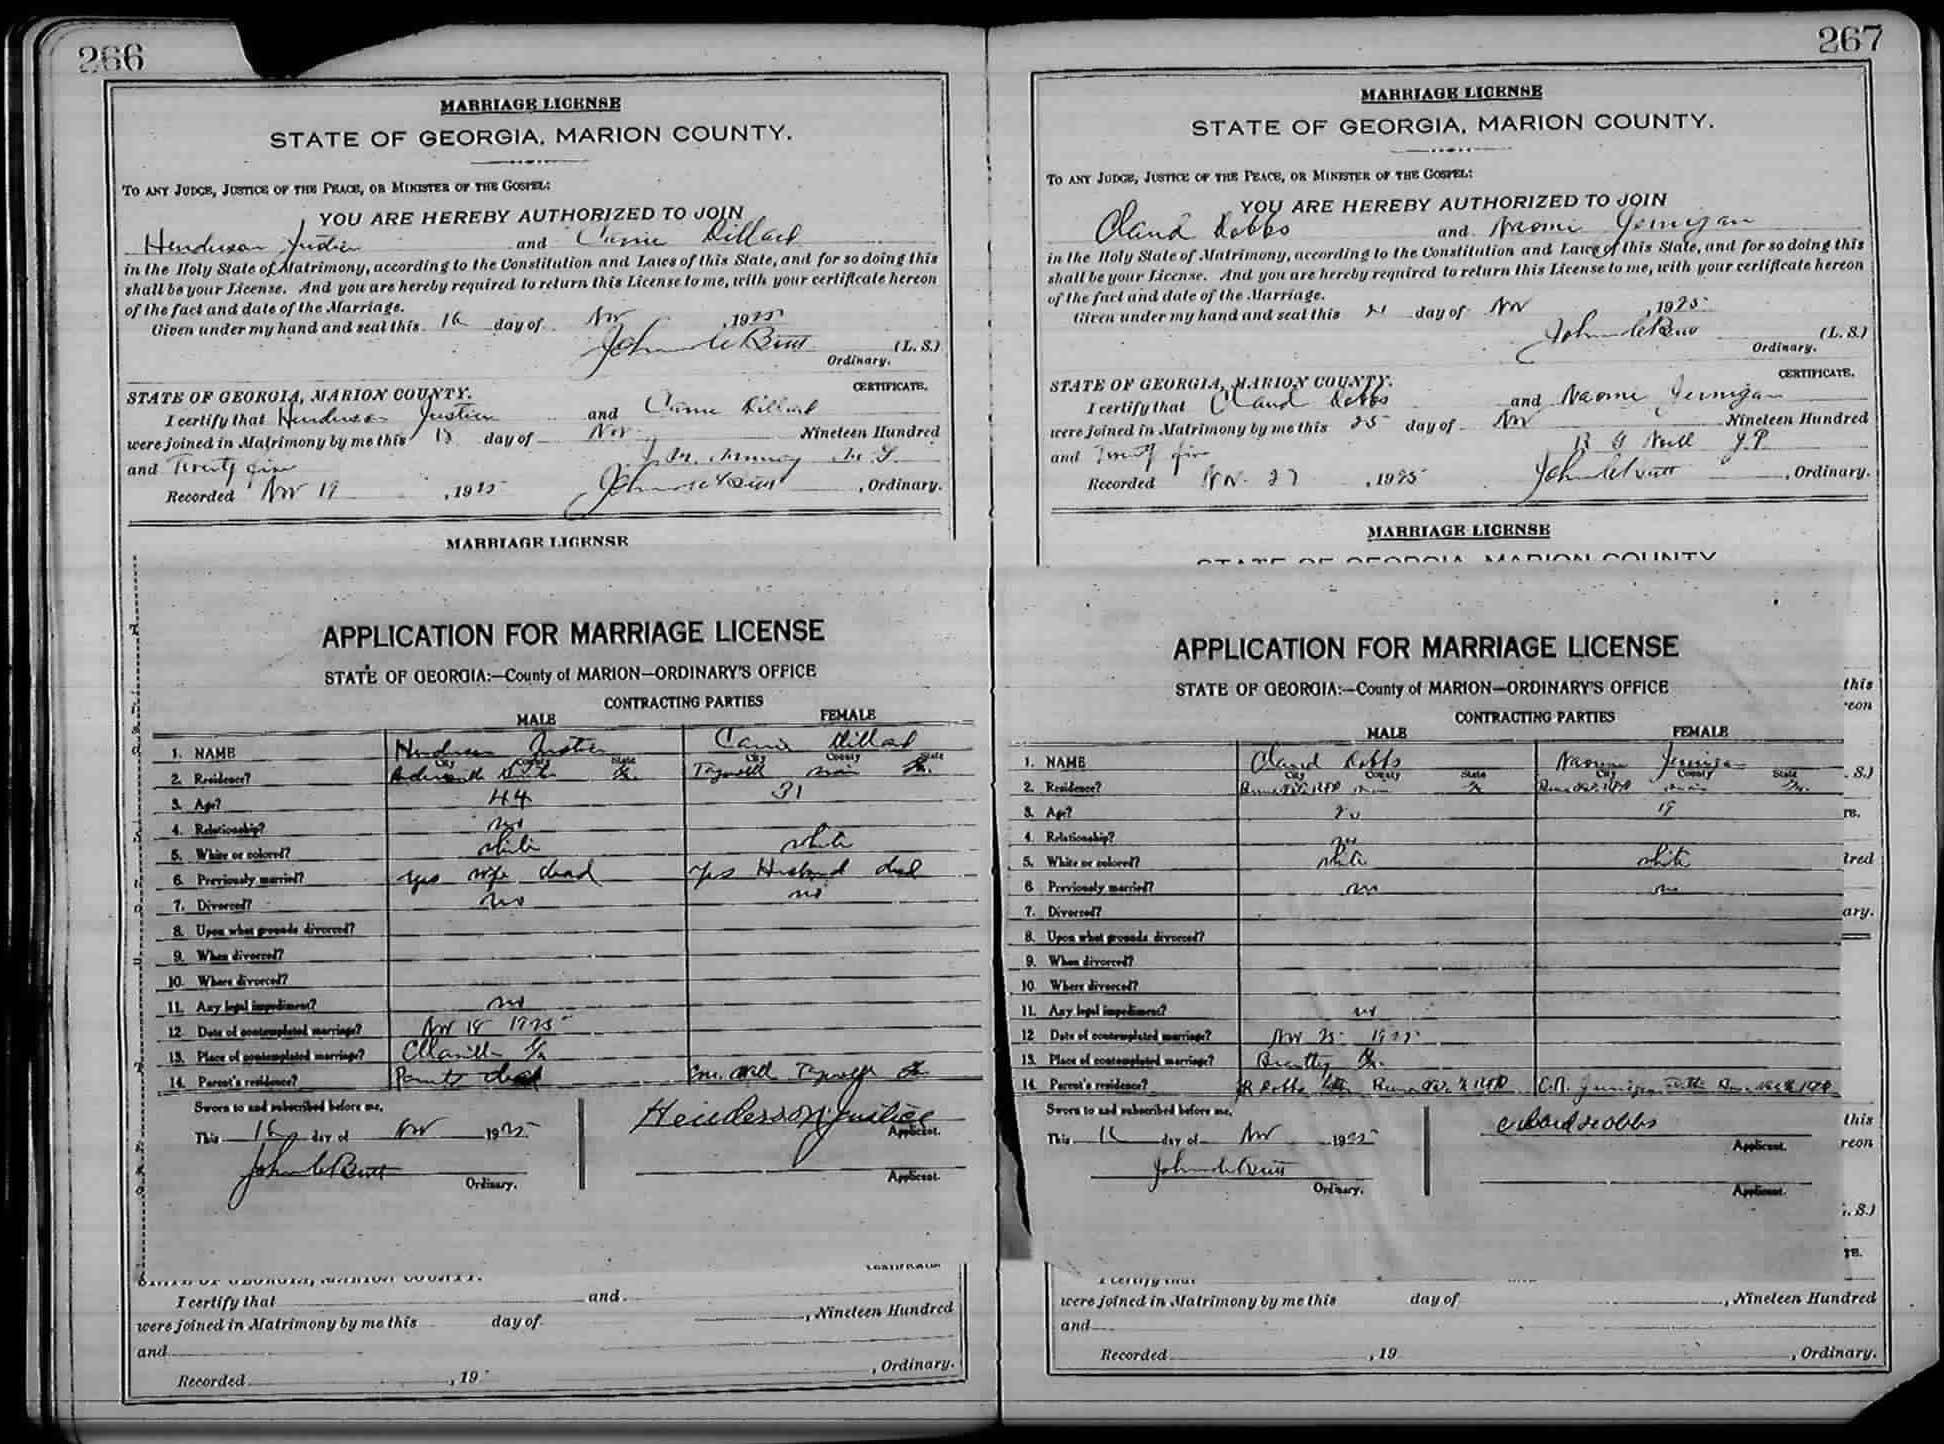 266
MARRIAGE LICENSE
STATE OF GEORGIA, MARION COUNTY.
TO ANY JUDGE, JUSTICE OF THE PEACE, OR MINISTER OF THE GOSPEL:
YOU ARE HEREBY AUTHORIZED TO JOIN
Henderson Justice and Carrie Dillard
in the Holy State of Matrimony, according to the Constitution and Laws of this State, and for so doing this
shall be your License. And you are hereby required to return this License to me, with your certificate hereon
of the fact and date of the Marriage.
Given under my hand and seal this 16 day of Nov, 1925
John Butt (L. S.)
Ordinary.
CERTIFICATE.
STATE OF GEORGIA, MARION COUNTY.
I certify that Henderson Justice and Carrie Dillard
were joined in Matrimony by me this day of Nov Nineteen Hundred
and Twenty five
Recorded Nov 19, 1925 John Butt, Ordinary.
MARRIAGE LICENSE
APPLICATION FOR MARRIAGE LICENSE
STATE OF GEORGIA:—County of MARION—ORDINARY'S OFFICE
CONTRACTING PARTIES
MALE FEMALE
1. NAME Henderson Justice Carrie Dillard
City County State City County State
2. Residence? Ga. Tazewell Ga.
3. Age? 44 31
4. Relationship? no
5. White or colored? white white
6. Previously married? yes wife dead yes Husband dead
7. Divorced? no no
8. Upon what grounds divorced?
9. When divorced?
10. Where divorced?
11. Any legal impediment? no
12 Date of contemplated marriage? Nov 18 1925
13. Place of contemplated marriage? Ellaville Ga
14. Parent's residence? Parents dead Tazewell Ga
Sworn to and subscribed before me,
This 16 day of Nov 1925 Henderson Justice
Applicant.
John Butt
Ordinary. Applicant.
STATE OF GEORGIA, MARION COUNTY.
I certify that and
were joined in Matrimony by me this day of , Nineteen Hundred
and
Recorded , 19 , Ordinary.
267
MARRIAGE LICENSE
STATE OF GEORGIA, MARION COUNTY.
TO ANY JUDGE, JUSTICE OF THE PEACE, OR MINISTER OF THE GOSPEL:
YOU ARE HEREBY AUTHORIZED TO JOIN
Claud Dobbs and Naomi Jernigan
in the Holy State of Matrimony, according to the Constitution and Laws of this State, and for so doing this
shall be your License. And you are hereby required to return this License to me, with your certificate hereon
of the fact and date of the Marriage.
Given under my hand and seal this 21 day of Nov, 1925
John Butt (L. S.)
Ordinary.
CERTIFICATE.
STATE OF GEORGIA, MARION COUNTY.
I certify that Claud Dobbs and Naomi Jernigan
were joined in Matrimony by me this 25 day of Nov Nineteen Hundred
and Twenty five J.P.
Recorded Nov. 27, 1925 John Butt, Ordinary.
MARRIAGE LICENSE
STATE OF GEORGIA, MARION COUNTY
APPLICATION FOR MARRIAGE LICENSE
STATE OF GEORGIA:—County of MARION—ORDINARY'S OFFICE
CONTRACTING PARTIES
MALE FEMALE
1. NAME Claud Dobbs Naomi Jernigan
City County State City County State
2. Residence? Buena Vista RFD Ga Buena Vista RFD Ga.
3. Age? 20 19
4. Relationship? no
5. White or colored? white white
6 Previously married? no no
7. Divorced?
8. Upon what grounds divorced?
9. When divorced?
10. Where divorced?
11. Any legal impediment? no
12 Date of contemplated marriage? Nov 25 1925
13. Place of contemplated marriage? Brantley Ga.
14. Parent's residence? R Dobbs Buena Vista RFD Jernigan
Sworn to and subscribed before me,
This day of Nov 1925 Claud Dobbs
Applicant.
John Butt
Ordinary. Applicant.
I certify that and
were joined in Matrimony by me this day of , Nineteen Hundred
and
Recorded , 19 , Ordinary.